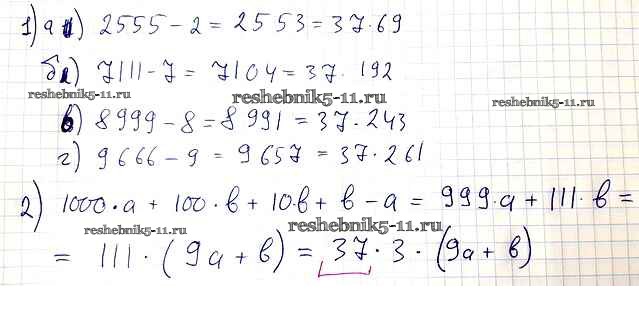 1) а) 2555 - 2 = 2553 = 37·69
б) 7111 - 7 = 7104 = 37·192
reshebnik5-11.ru reshebnik5-11.ru reshebnik5-11.ru
в) 8999 - 8 = 8991 = 37·243
г) 9666 - 9 = 9657 = 37·261
2) 1000·а + 100·в + 10в + в - а = 999·а + 111·в =
reshebnik5-11.ru reshebnik5-11.ru
= 111·(9а + в) = 37·3·(9а + в)